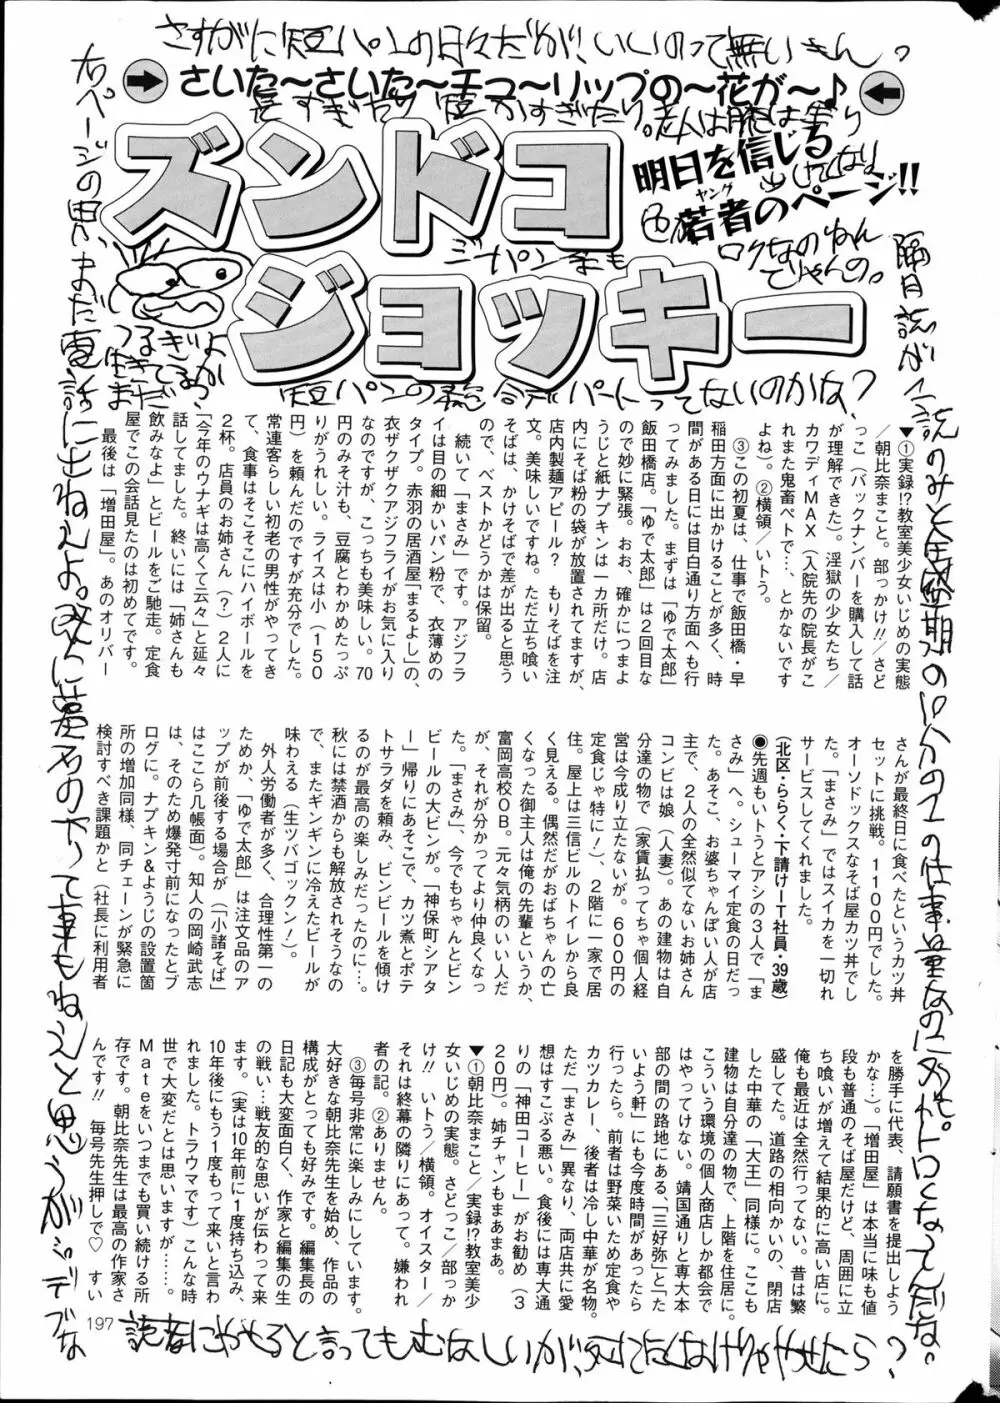 さいた〜さいた〜チュ〜リップの〜花が〜♪
ズンドコ
ジョッキー
明日を信じる
若者のページ!!
ヤング
▼①実録!?教室美少女いじめの実態
／朝比奈まこと。部っかけ!!／さど
っこ（バックナンバーを購入して話
が理解できた）。淫獄の少女たち／
カワディＭＡＸ（入院先の院長がこ
れまた鬼畜ペドで…、とかないです
よね）。②横領／いトう。
③この初夏は、仕事で飯田橋・早
稲田方面に出かけることが多く、時
間がある日には目白通り方面へも行
ってみました。まずは「ゆで太郎」
飯田橋店。「ゆで太郎」は２回目な
ので妙に緊張。おお、確かにつまよ
うじと紙ナプキンは一カ所だけ。店
内にそば粉の袋が放置されてますが、
店内製麺アピール？　もりそばを注
文。美味しいですね。ただ立ち喰い
そばは、かけそばで差が出ると思う
ので、ベストかどうかは保留。
続いて「まさみ」です。アジフラ
イは目の細かいパン粉で、衣薄めの
タイプ。赤羽の居酒屋「まるよし」の、
衣ザクザクアジフライがお気に入り
なのですが、こっちも美味しい。70
円のみそ汁も、豆腐とわかめたっぷ
りがうれしい。ライスは小（１５０
円）を頼んだのですが充分でした。
常連客らしい初老の男性がやってき
て、食事はそこそこにハイボールを
２杯。店員のお姉さん（？）２人に
「今年のウナギは高くて云々」と延々
話してました。終いには「姉さんも
飲みなよ」とビールをご馳走。定食
屋でこの会話見たのは初めてです。
最後は「増田屋」。あのオリバー
さんが最終日に食べたというカツ丼
セットに挑戦。１１００円でした。
オーソドックスなそば屋カツ丼でし
た。「まさみ」ではスイカを一切れ
サービスしてくれました。
（北区・ららく・下請けＩＴ社員・39歳）
●先週もいトうとアシの３人で「ま
さみ」へ。シューマイ定食の日だっ
た。あそこ、お婆ちゃんぽい人が店
主で、２人の全然似てないお姉さん
コンビは娘（人妻）。あの建物は自
分達の物で（家賃払ってちゃ個人経
営は今成り立たないが。６００円の
定食じゃ特に！）、２階に一家で居
住。屋上は三信ビルのトイレから良
く見える。偶然だがおばちゃんの亡
くなった御主人は俺の先輩というか、
富岡高校ＯＢ。元々気柄のいい人だ
が、それが分かってより仲良くなっ
た。「まさみ」、今でもちゃんとビン
ビールの大ビンが。「神保町シアタ
ー」帰りにあそこで、カツ煮とポテ
トサラダを頼み、ビンビールを傾け
るのが最高の楽しみだったのに…。
秋には禁酒からも解放されそうなの
で、またギンギンに冷えたビールが
味わえる（生ツバゴックン！）。
外人労働者が多く、合理性第一の
ためか、「ゆで太郎」は注文品のア
ップが前後する場合が（「小諸そば」
はここら几帳面）。知人の岡崎武志
は、そのため爆発寸前になったとブ
ログに。ナプキン＆ようじの設置箇
所の増加同様、同チェーンが緊急に
検討すべき課題かと（社長に利用者
を勝手に代表、請願書を提出しよう
かな…）。「増田屋」は本当に味も値
段も普通のそば屋だけど、周囲に立
ち喰いが増えて結果的に高い店に。
俺も最近は全然行ってない。昔は繁
盛してた。道路の相向かいの、閉店
した中華の「大王」同様に。ここも
建物は自分達の物で、上階を住居に。
こういう環境の個人商店しか都会で
はやってけない。靖国通りと専大本
部の間の路地にある、「三好弥」と「た
いよう軒」にも今度時間があったら
行ったら。前者は野菜いため定食や
カツカレー、後者は冷し中華が名物。
ただ「まさみ」異なり、両店共に愛
想はすこぶる悪い。食後には専大通
りの「神田コーヒー」がお勧め（３
２０円）。姉チャンもまあまあ。
▼①朝比奈まこと／実録!?教室美少
女いじめの実態。さどっこ／部っか
け!!　いトう／横領。オイスター／
それは終幕の隣りにあって。嫌われ
者の記。②ありません。
③毎号非常に楽しみにしています。
大好きな朝比奈先生を始め、作品の
構成がとっても好みです。編集長の
日記も大変面白く、作家と編集の生
の戦い…戦友的な思いが伝わって来
ます。（実は10年前に１度持ち込み、
10年後にもう１度もって来いと言わ
れました。トラウマです）こんな時
世で大変だとは思いますが……。
Ｍａｔｅをいつまでも買い続ける所
存です。朝比奈先生は最高の作家さ
んです!!　毎号先生押しで♡　すい
197
さすがに短パンの日々だが、いいのって無いもん？
長すぎたり短かすぎたり。
ジーパンまも
ロクなのねん
短パンの総合デパートってないのかな？
読者にやせろと言ってもむなしいが